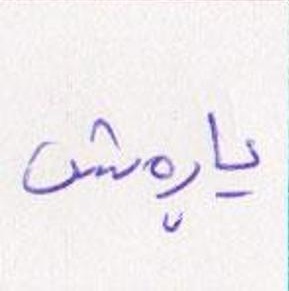 یاڕەش